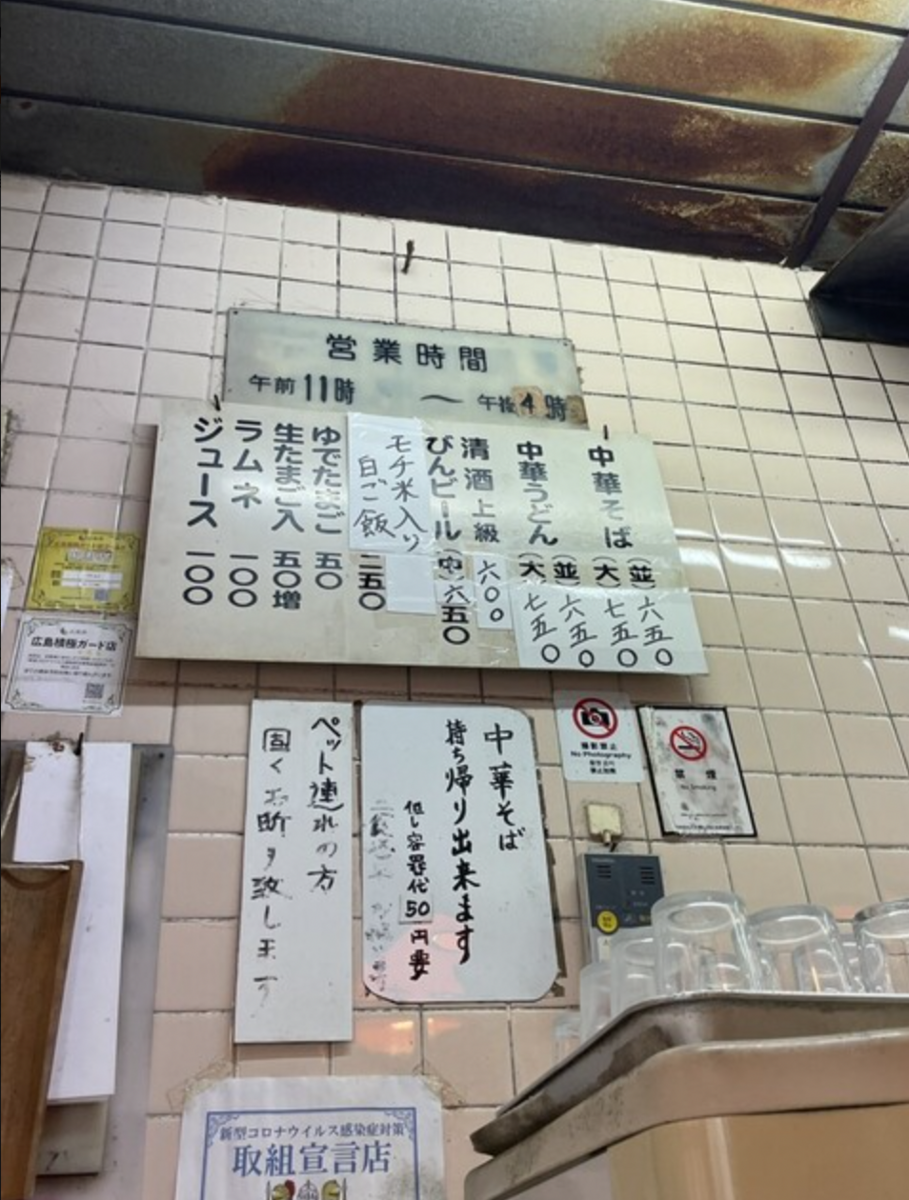 営業時間
午前11時 〜 午後4時
中華そば (並) 六五〇
(大) 七五〇
中華うどん (並) 六五〇
(大) 七五〇
清酒上級 六〇〇
びんビール (中) 六五〇
モチ米入り
白ご飯 二五〇
ゆでたまご 五〇
生たまご入 五〇増
ラムネ 一〇〇
ジュース 一〇〇
広島積極ガード店
中華そば
持ち帰り出来ます
但し容器代50円要
ペット連れの方
固くお断り致します
撮影禁止
No Photography
禁煙
No Smoking
新型コロナウイルス感染症対策
取組宣言店